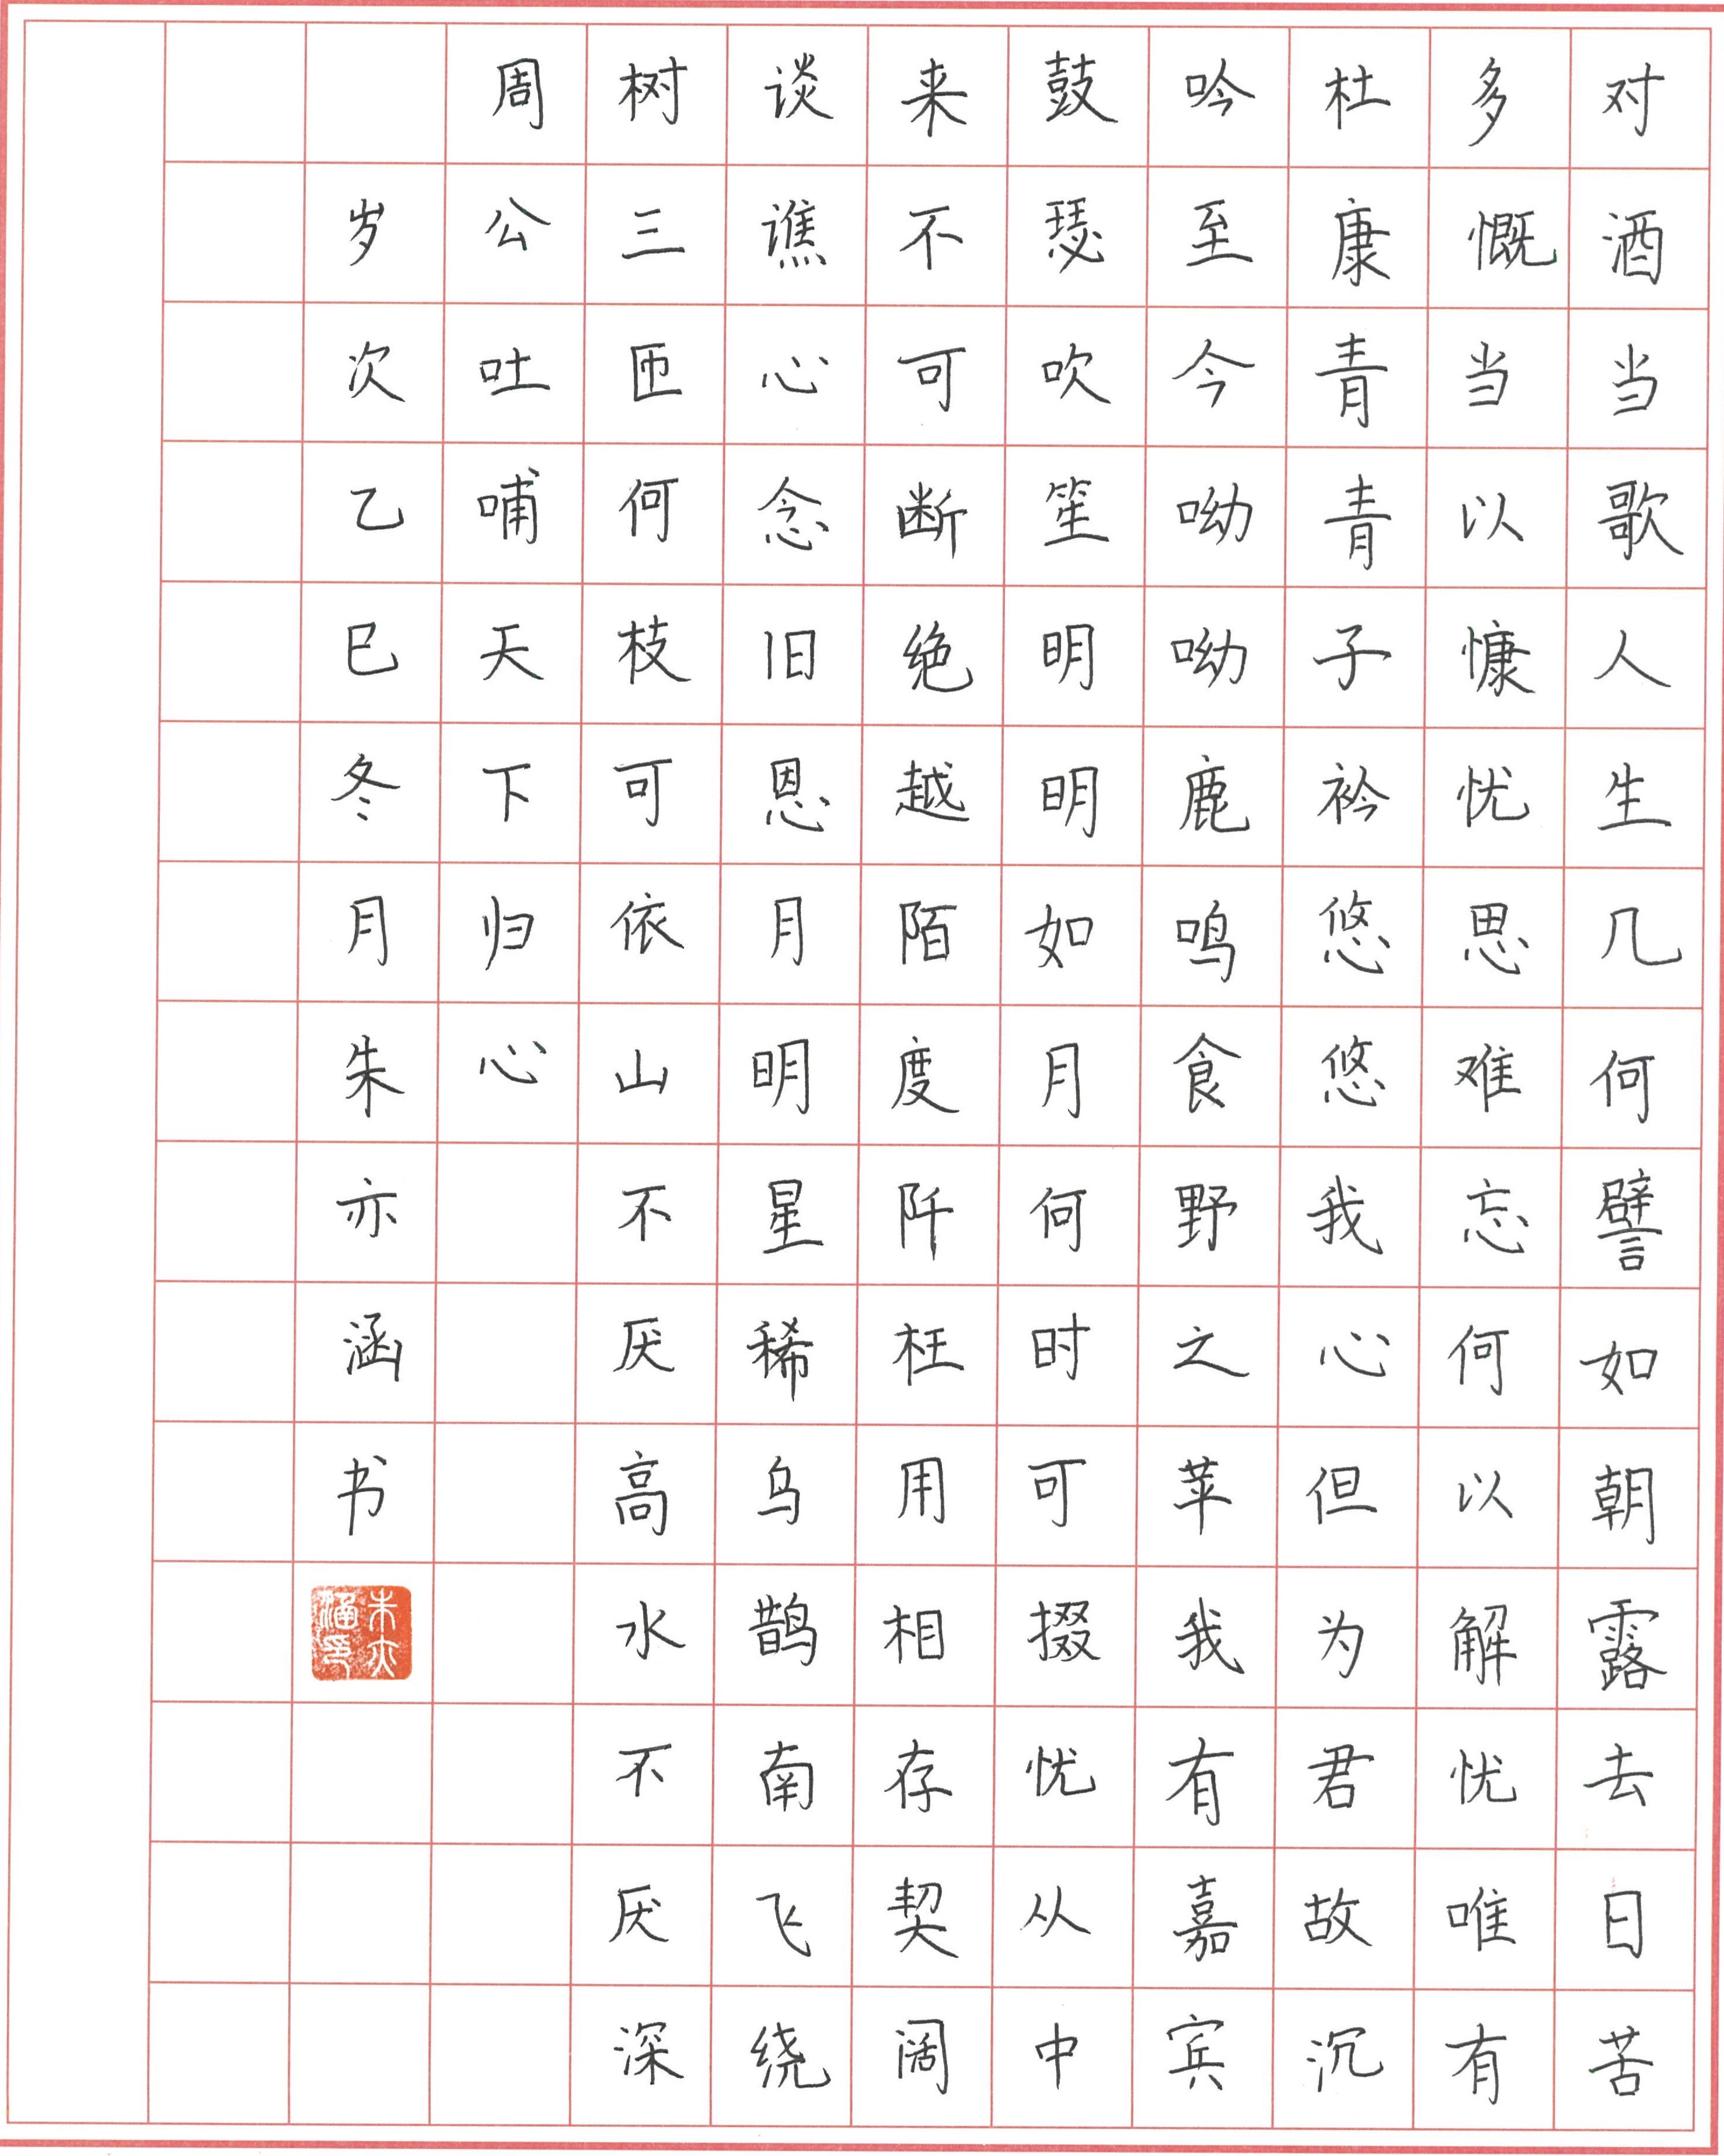 对酒当歌人生几何譬如朝露去日苦
多慨当以慷忧思难忘何以解忧唯有
杜康青青子衿悠悠我心但为君故沉
吟至今呦呦鹿鸣食野之苹我有嘉宾
鼓瑟吹笙明明如月何时可掇忧从中
来不可断绝越陌度阡枉用相存契阔
谈䜩心念旧恩月明星稀乌鹊南飞绕
树三匝何枝可依山不厌高水不厌深
周公吐哺天下归心
岁次乙巳冬月朱亦涵书
朱亦涵印